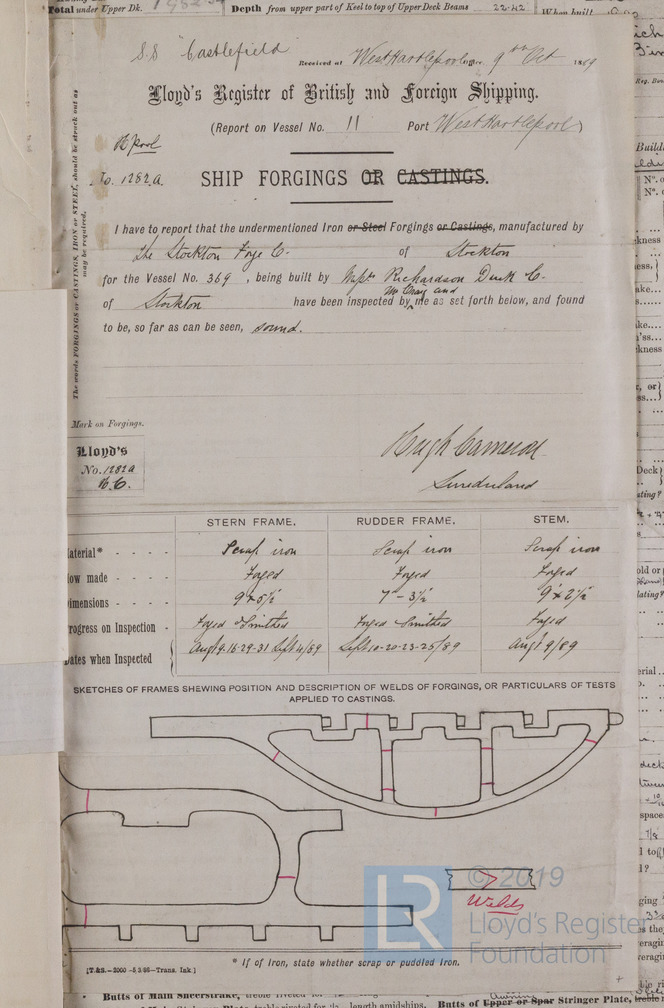 Total under Upper Dk.
Depth from upper part of Keel to top of Upper Deck Beams 22.42
When built
S.S "Castlefield
Received at West Hartlepool 9th Oct 1889
Lloyd's Register of British and Foreign Shipping.
(Report on Vessel No. 11 Port West Hartlepool)
H.pool
No. 1282.a. SHIP FORGINGS OR CASTINGS.
The words FORGINGS or CASTINGS, IRON or STEEL, should be struck out as
may be required.
I have to report that the undermentioned Iron or Steel Forgings or Castings, manufactured by
The Stockton Forge Co. of Stockton
for the Vessel No. 369, being built by Messrs Richardson Duck Co.
and
of Stockton have been inspected by me as set forth below, and found
to be, so far as can be seen, sound.
Mark on Forgings.
Lloyd's
No. 1282a
H.C.
Hugh Cameron
Sunderland
STERN FRAME. RUDDER FRAME. STEM.
Material* - - - - Scrap iron Scrap iron Scrap iron
How made - - - - Forged Forged Forged
Dimensions - - - - 9 x 5½ 7 - 3½ 9 x 2½
Progress on Inspection - Forged & Smithed Forged & Smithed Forged
Dates when Inspected Aug 9. 18-29-31 Sept 4/89 Sept 10-20-23-25/89 Aug 9/89
SKETCHES OF FRAMES SHEWING POSITION AND DESCRIPTION OF WELDS OF FORGINGS, OR PARTICULARS OF TESTS
APPLIED TO CASTINGS.
Welds
© 2019
LR
Lloyd's Register
Foundation
* If of Iron, state whether scrap or puddled Iron.
[T.&S.—2000 —5.3.86—Trans. Ink.]
Butts of Main Sheerstrake, length amidships.
Butts of Upper or Spar Stringer Plate,